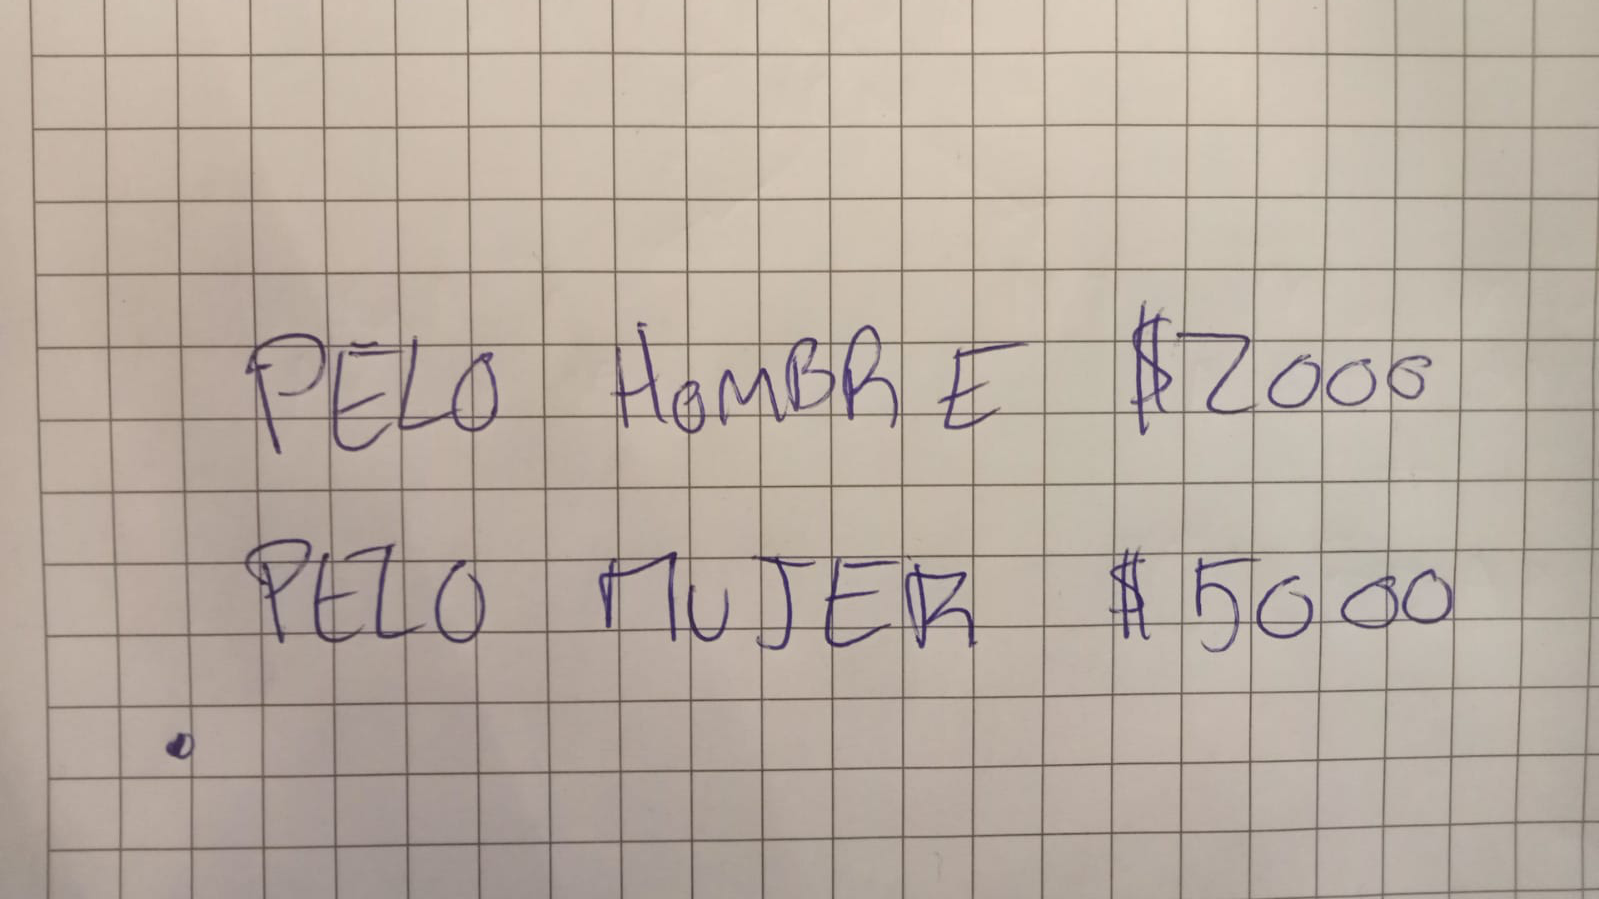 PELO HOMBRE $2000
PELO MUJER $5000